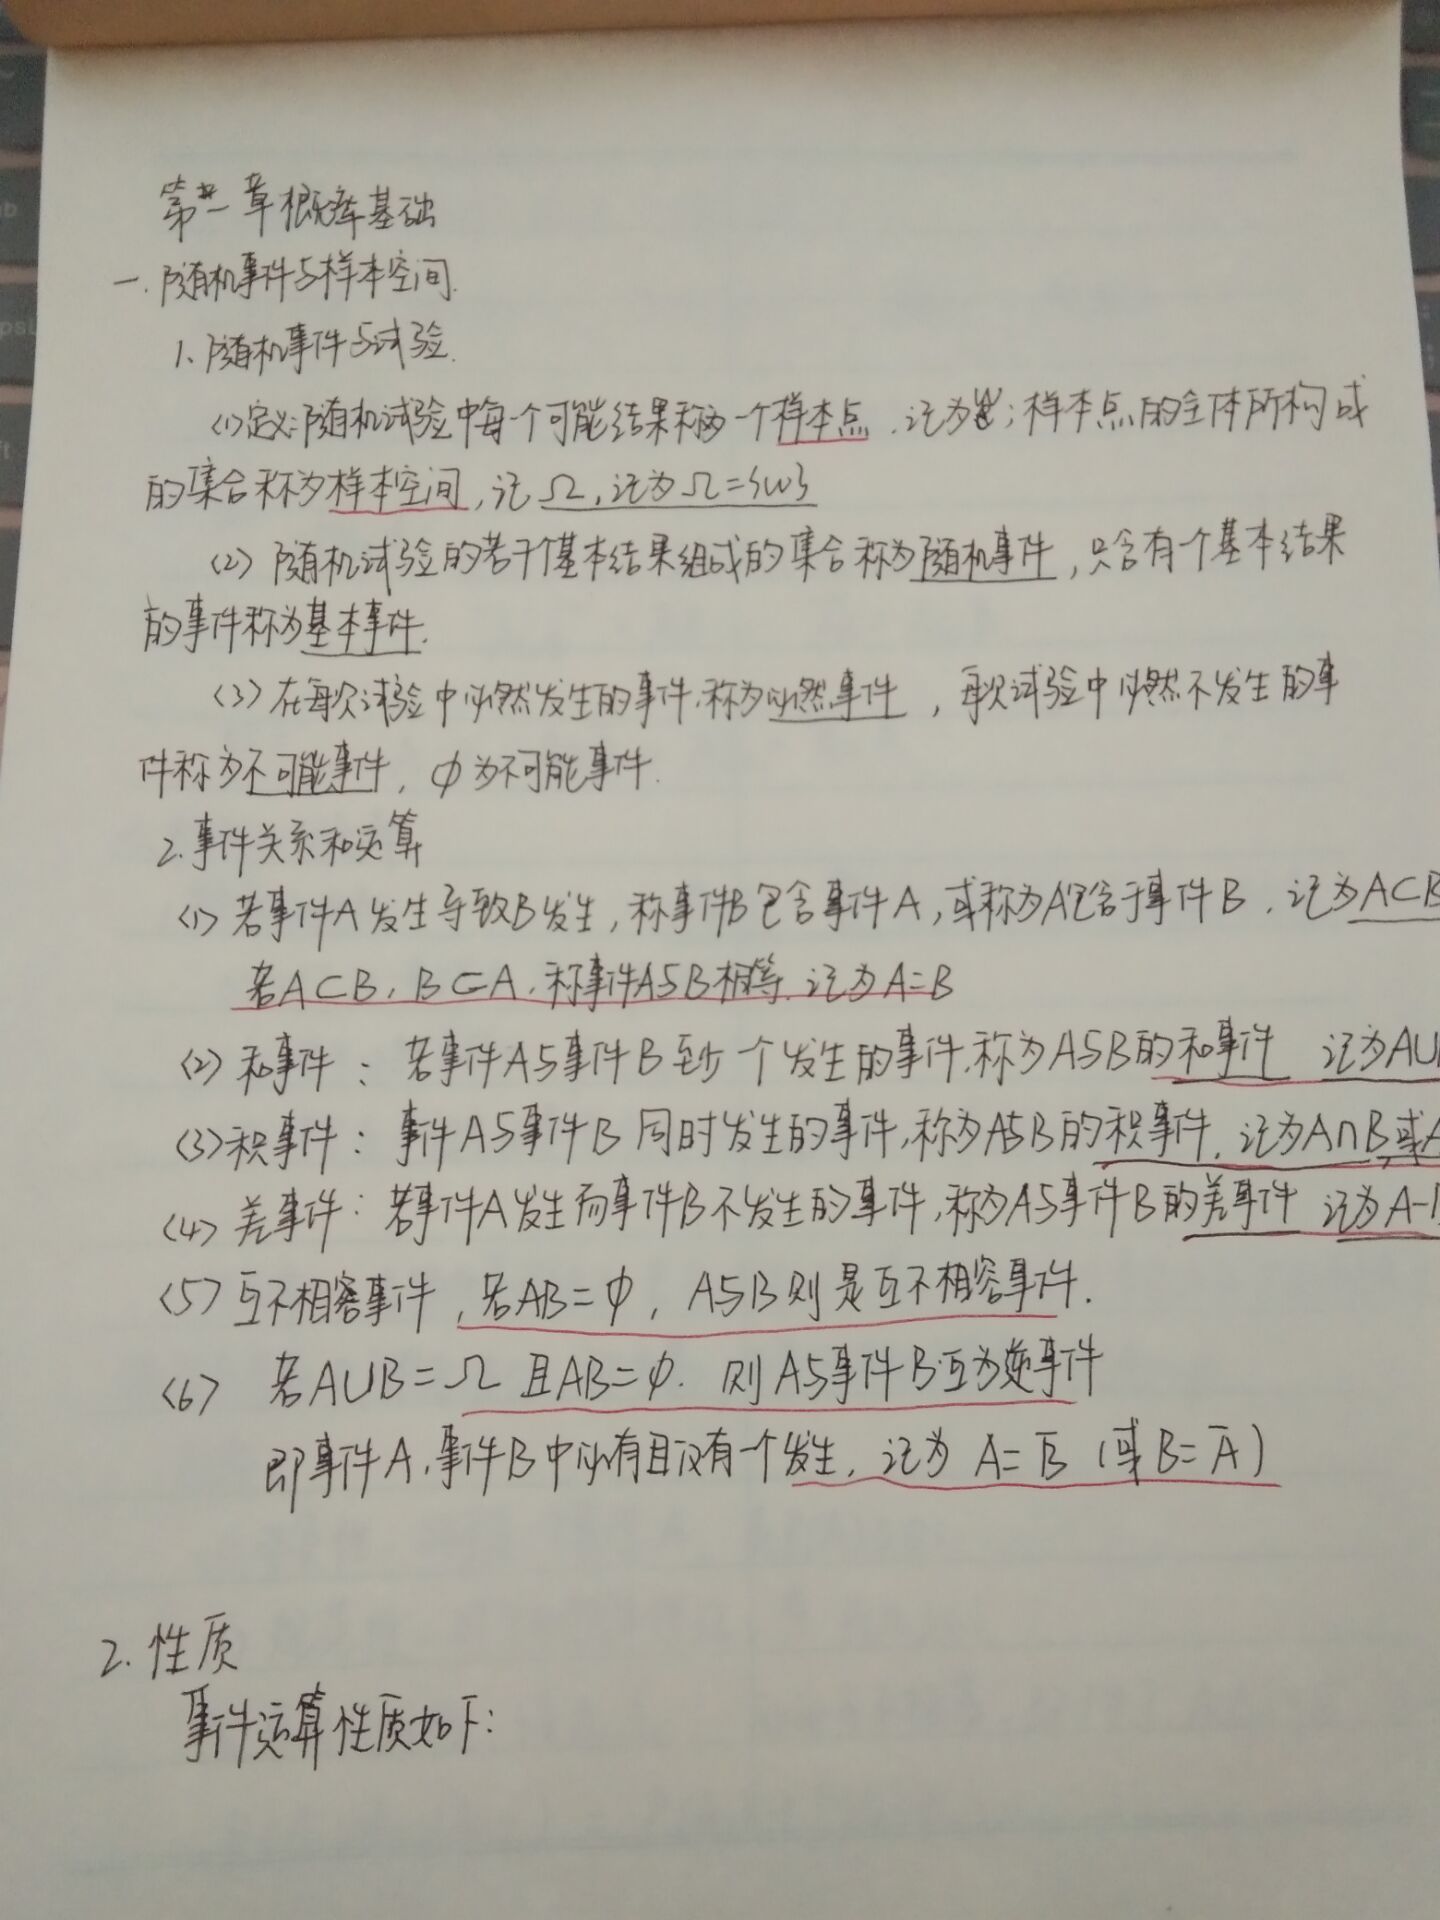 第二章概率基础
一.随机事件与样本空间.
1、随机事件与试验.
(1)定义:随机试验中每一个可能结果称为一个样本点.记为w;样本点的全体所构成
的集合称为样本空间,记Ω,记为Ω={w}
(2)随机试验的若干个基本结果组成的集合称为随机事件,只含有一个基本结果
的事件称为基本事件.
(3)在每次试验中必然发生的事件.称为必然事件,每次试验中必然不发生的事
件称为不可能事件,φ为不可能事件.
2.事件关系和运算
(1)若事件A发生导致B发生,称事件B包含事件A,或称为A包含于事件B.记为A⊂B
若A⊂B,B⊂A.称事件A与B相等.记为A=B
(2)和事件:若事件A与事件B至少一个发生的事件.称为A与B的和事件 记为AU
(3)积事件:事件A与事件B同时发生的事件,称为A与B的积事件.记为A∩B,或A
(4)差事件:若事件A发生而事件B不发生的事件,称为A与事件B的差事件 记为A-
(5)互不相容事件,若AB=φ,A与B则是互不相容事件.
(6) 若AUB=Ω且AB=φ.则A与事件B互为逆事件
即事件A.事件B中必有且仅有一个发生,记为A=B̅(或B=A̅)
2.性质
事件运算性质如下: